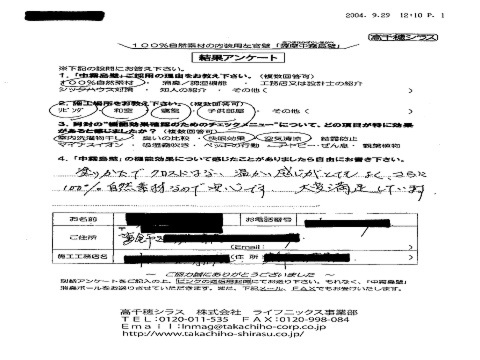 2004. 9.29 12:10 P. 1
高千穂シラス
100%自然素材の内装用左官壁「薩摩中霧島壁」
結果アンケート
※下記の設問にお答え下さい。
1.「中霧島壁」ご採用の理由をお教え下さい。(複数回答可)
100%自然素材 ・ 消臭/調湿機能 ・ 工務店又は設計士の紹介
シックハウス対策 ・ 知人の紹介 ・ その他( )
2. 施工場所をお教え下さい。(複数回答可)
リビング ・ 和室 ・ 寝室 ・ 子供部屋 ・ その他( )
3. 同封の「機能効果確認のためのチェックメニュー」について、どの項目が特に効果
があると感じましたか?(複数回答可)
室内洗濯物干し ・ 臭いの比較 ・ 快眠効果 ・ 空気清浄 ・ 結露防止
マイナスイオン ・ 吸湿器吹き ・ ペットの行動 ・ アトピー・ぜん息 ・ 観葉植物
4.「中霧島壁」の機能効果について感じたことがありましたら自由にお書き下さい。
塗りかたで クロスにはない 温かい感じがとてもよく、さらに
100%自然素材なので安心です。 大変満足しています。
お名前 お電話番号
ご住所
(Email: )
施工工務店名 (住所 )
― ご協力誠にありがとうございました ―
別紙アンケートをご記入の上、ピンクの返信用封筒にてお送り下さい。もれなく、「中霧島壁」
消臭ボールをお送りさせていただきます。また、下記メール、FAXでもお受けいたします。
高千穂シラス 株式会社 ライフニックス事業部
TEL:0120-011-535 FAX:0120-998-084
Email:lnmag@takachiho-corp.co.jp
http://www.takachiho-shirasu.co.jp/